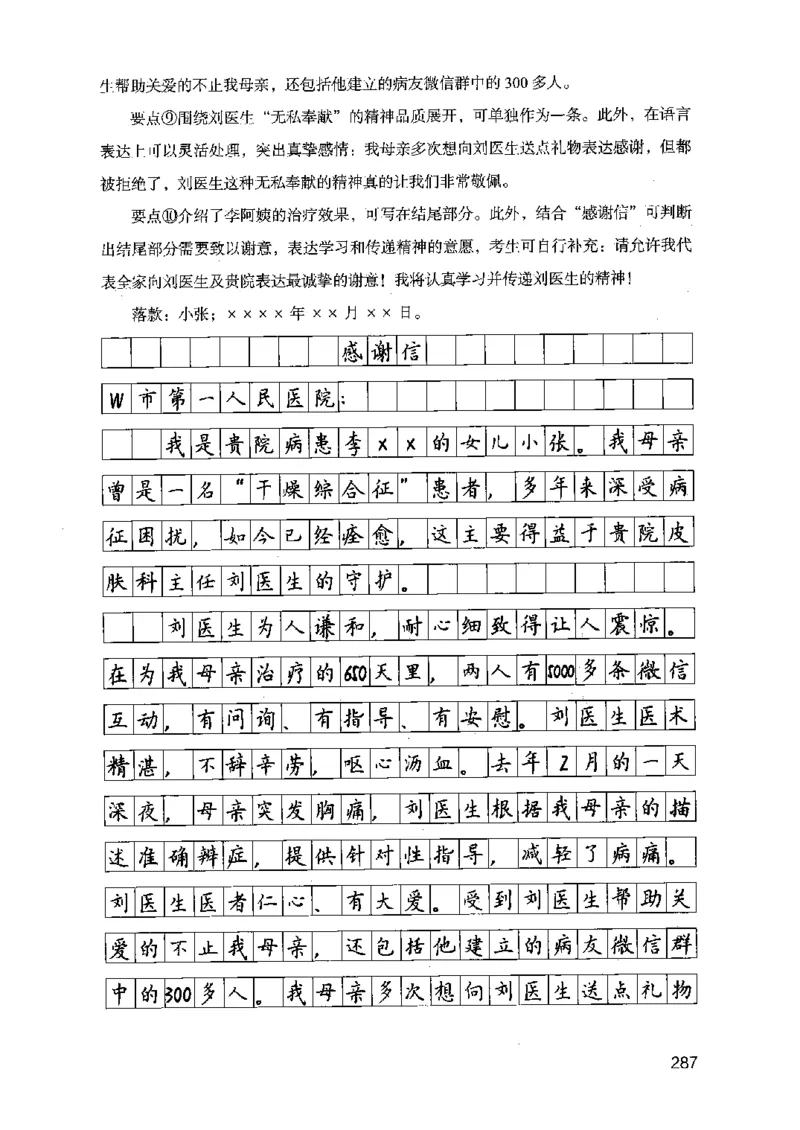 生帮助关爱的不止我母亲，还包括他建立的病友微信群中的 300 多人。
要点⑨围绕刘医生“无私奉献”的精神品质展开，可单独作为一条。此外，在语言
表达上可以灵活处理，突出真挚感情：我母亲多次想向刘医生送点礼物表达感谢，但都
被拒绝了，刘医生这种无私奉献的精神真的让我们非常敬佩。
要点⑩介绍了李阿姨的治疗效果，可写在结尾部分。此外，结合“感谢信”可判断
出结尾部分需要致以谢意，表达学习和传递精神的意愿，考生可自行补充：请允许我代
表全家向刘医生及贵院表达最诚挚的谢意！我将认真学习并传递刘医生的精神！
落款：小张；××××年××月××日。
感谢信
W市第一人民医院：
我是贵院病患李××的女儿小张。我母亲
曾是一名“干燥综合征”患者，多年来深受病
征困扰，如今已经痊愈，这主要得益于贵院皮
肤科主任刘医生的守护。
刘医生为人谦和，耐心细致得让人震惊。
在为我母亲治疗的650天里，两人有5000多条微信
互动，有问询、有指导、有安慰。刘医生医术
精湛，不辞辛劳，呕心沥血。去年2月的一天
深夜，母亲突发胸痛，刘医生根据我母亲的描
述准确辨症，提供针对性指导，减轻了病痛。
刘医生医者仁心、有大爱。受到刘医生帮助关
爱的不止我母亲，还包括他建立的病友微信群
中的300多人。我母亲多次想向刘医生送点礼物
287